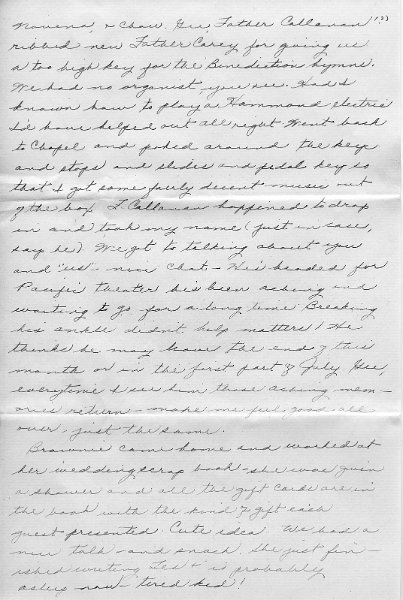 Novena, & Chow. Gee Father Callanan (3)
ribbed new Father Carey for giving us
a too high key for the Benediction hymns.
We had no organist, you see. Had I
known how to play a Hammond electric
I'd have helped out all right. Went back
to Chapel and poked around the keys
and stops and slides and pedal key so
that I got some fairly decent music out
of the box. F. Callanan happened to drop
in and took my name (just in case,
say he) We got to talking about you
and "us" - nice chat. - He's headed for
Pacific theater he's been asking and
wanting to go for a long time. Breaking
his ankle didn't help matters! He
thinks he may leave the end of this
month or in the first part of July. Gee,
everytime I see him those aching mem-
ories return - make me feel good all
over, just the same.
Brownie came home and worked at
her wedding scrap book - she was given
a shower and all the gift cards are in
the book with the kind of gift each
guest presented. Cute idea. We had a
nice talk - and snack. She just fin-
ished writing Les & is probably
asleep now - tired kid!